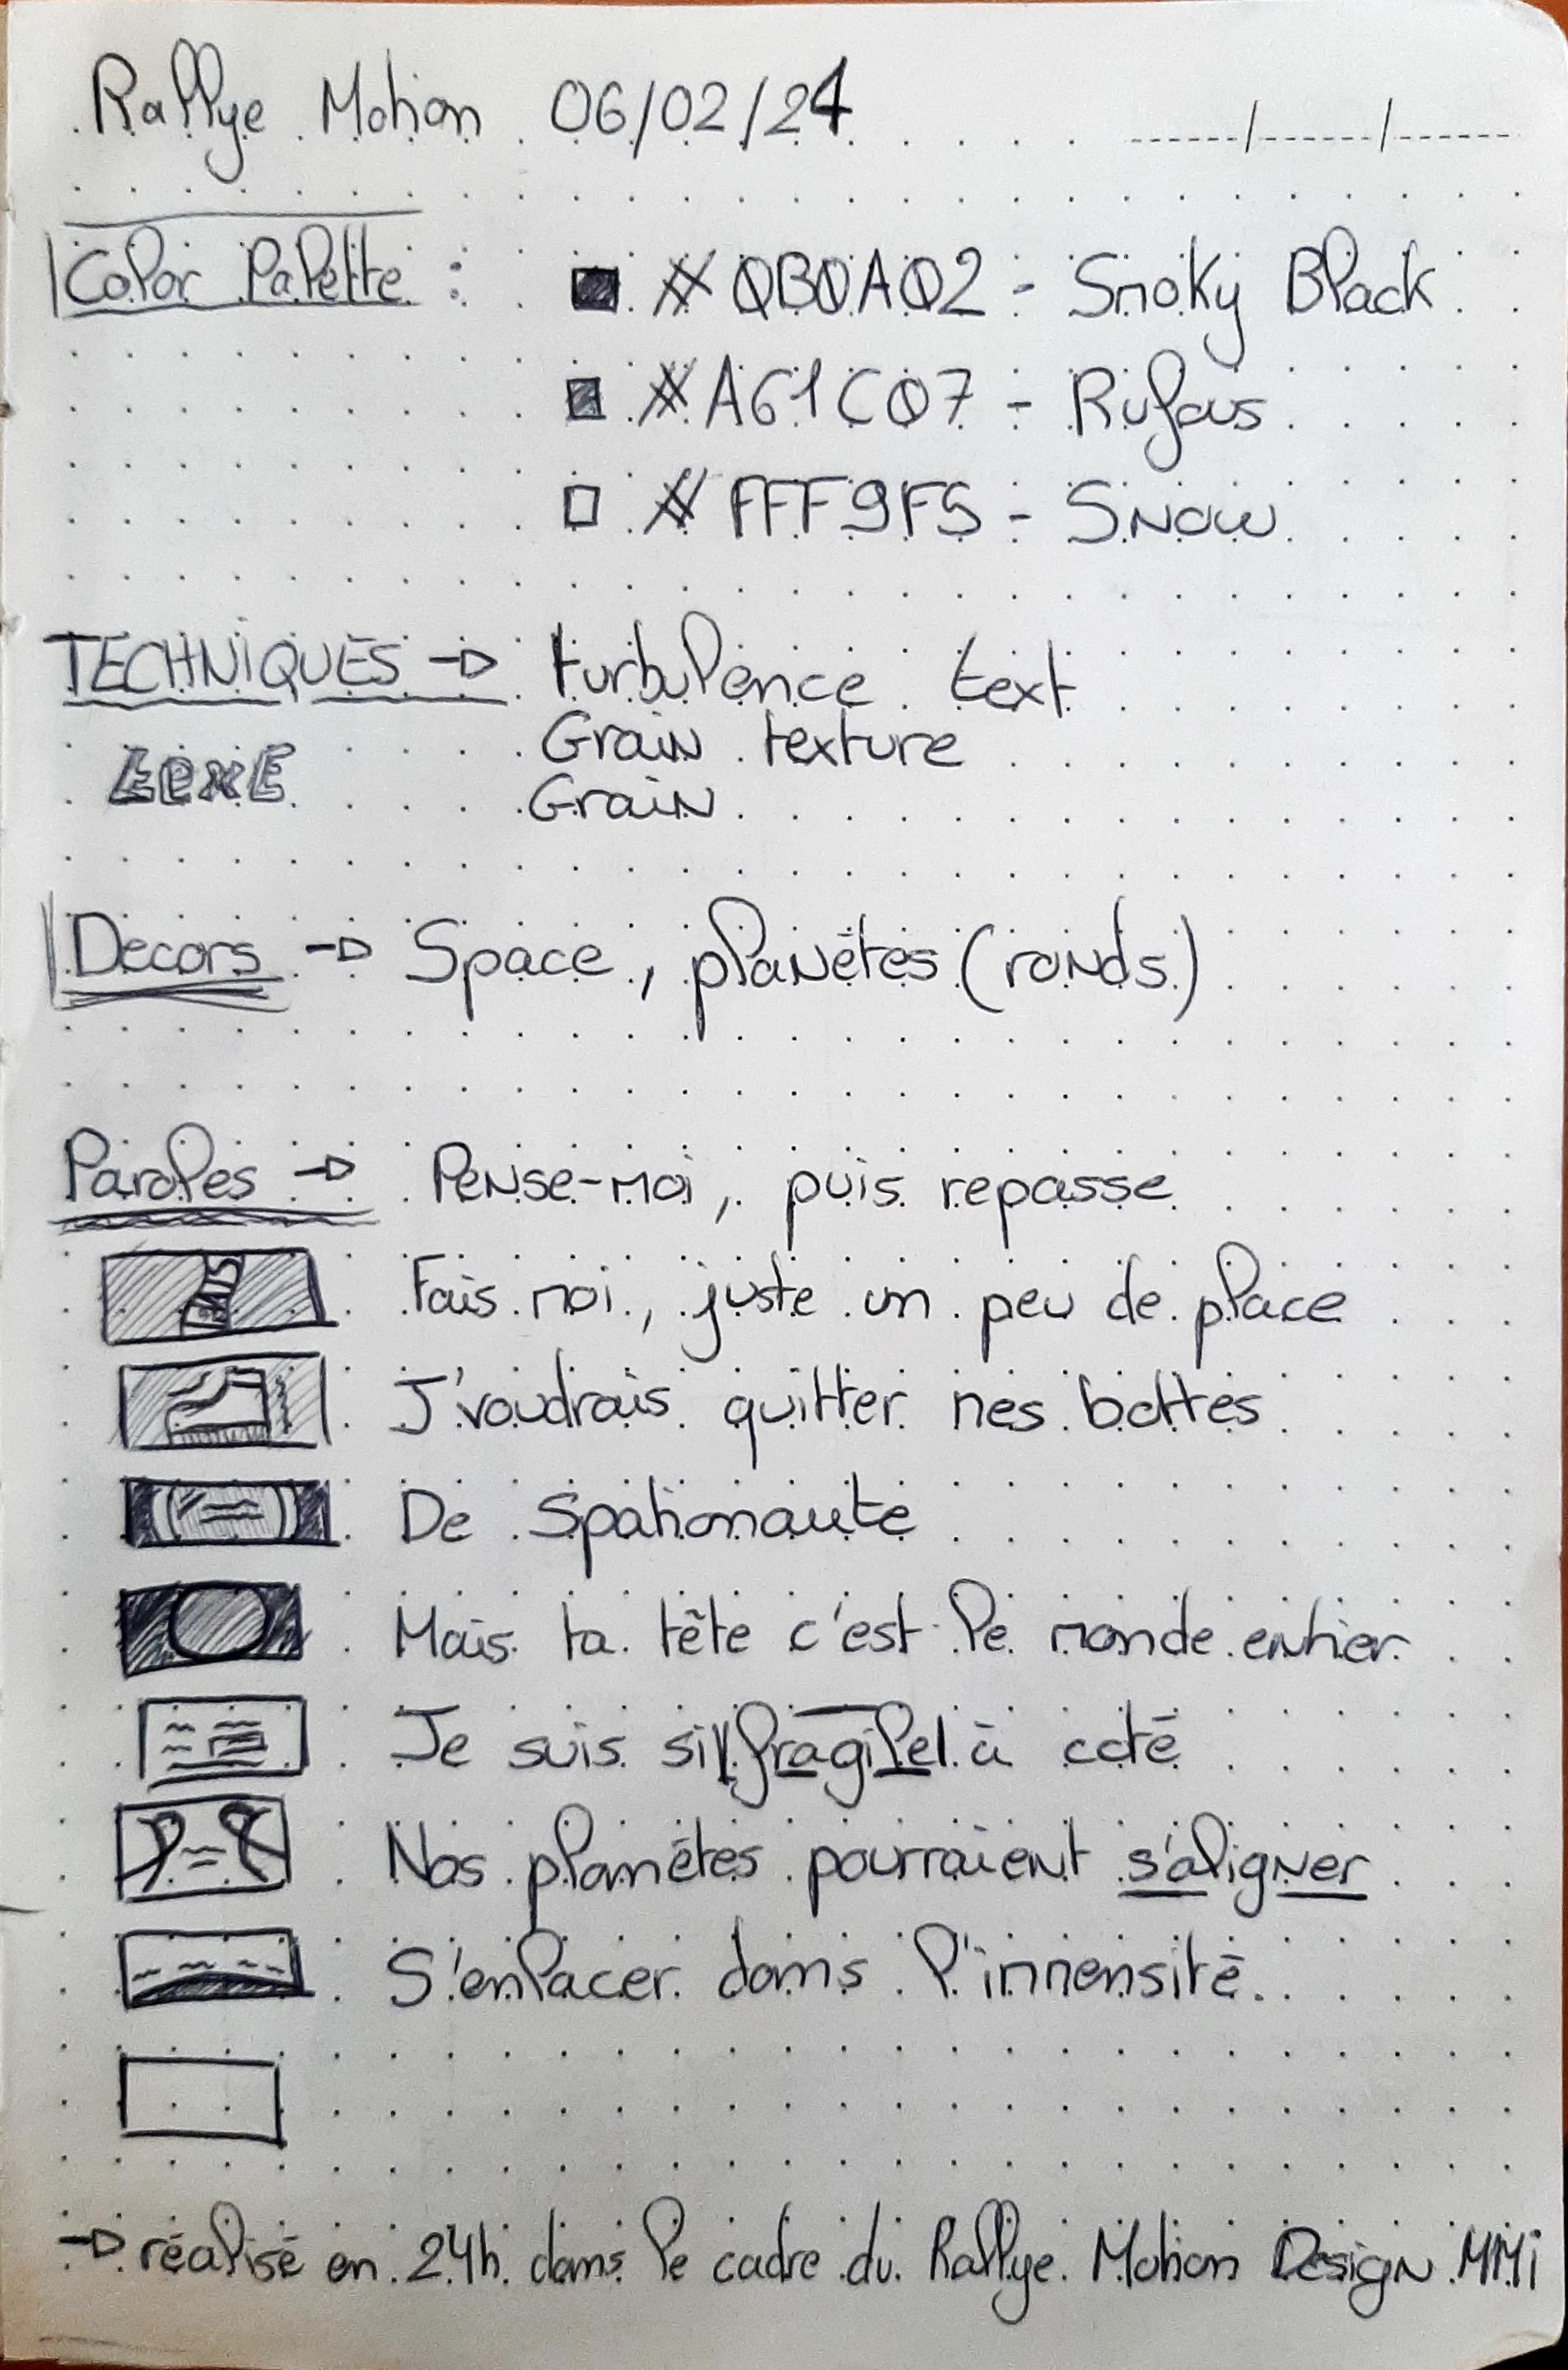 Rallye Motion 06/02/24
Color Palette : #0B0A02 - Smoky Black
#A61C07 - Rufous
#FFF9F5 - Snow
TECHNIQUES → turbulence text
Grain texture
Grain
Decors → Space, planètes (ronds)
Paroles → Pense-moi, puis repasse
Fais moi, juste un peu de place
J'voudrais quitter mes bottes
De Spationaute
Mais ta tête c'est le monde entier
Je suis si |fragile| à coté
Nos planètes pourraient s'aligner
S'enlacer dans l'immensité.
→ réalisé en 24h dans le cadre du Rallye Motion Design MMi